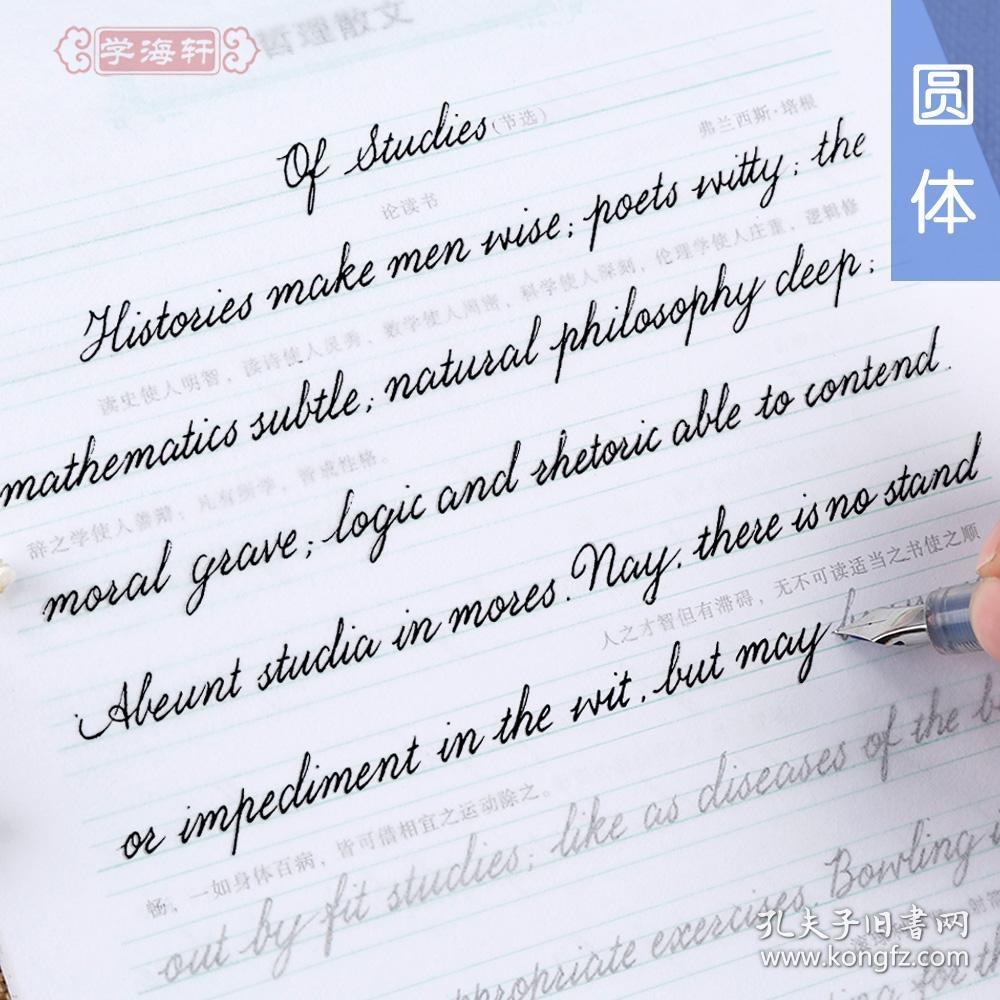 学海轩
文散理哲
圆体
Of Studies(节选)
弗兰西斯·培根
论读书
Histories make men wise; poets witty; the
读史使人明智，读诗使人灵秀，数学使人周密，科学使人深刻，伦理学使人庄重，逻辑修
mathematics subtle; natural philosophy deep;
辞之学使人善辩；凡有所学，皆成性格。
moral grave; logic and rhetoric able to contend.
Abeunt studia in mores. Nay, there is no stand
人之才智但有滞碍，无不可读适当之书使之顺
or impediment in the wit, but may be
畅，一如身体百病，皆可借相宜之运动除之。
out by fit studies; like as diseases of the b
appropriate exercises. Bowling
孔夫子旧书网
www.kongfz.com